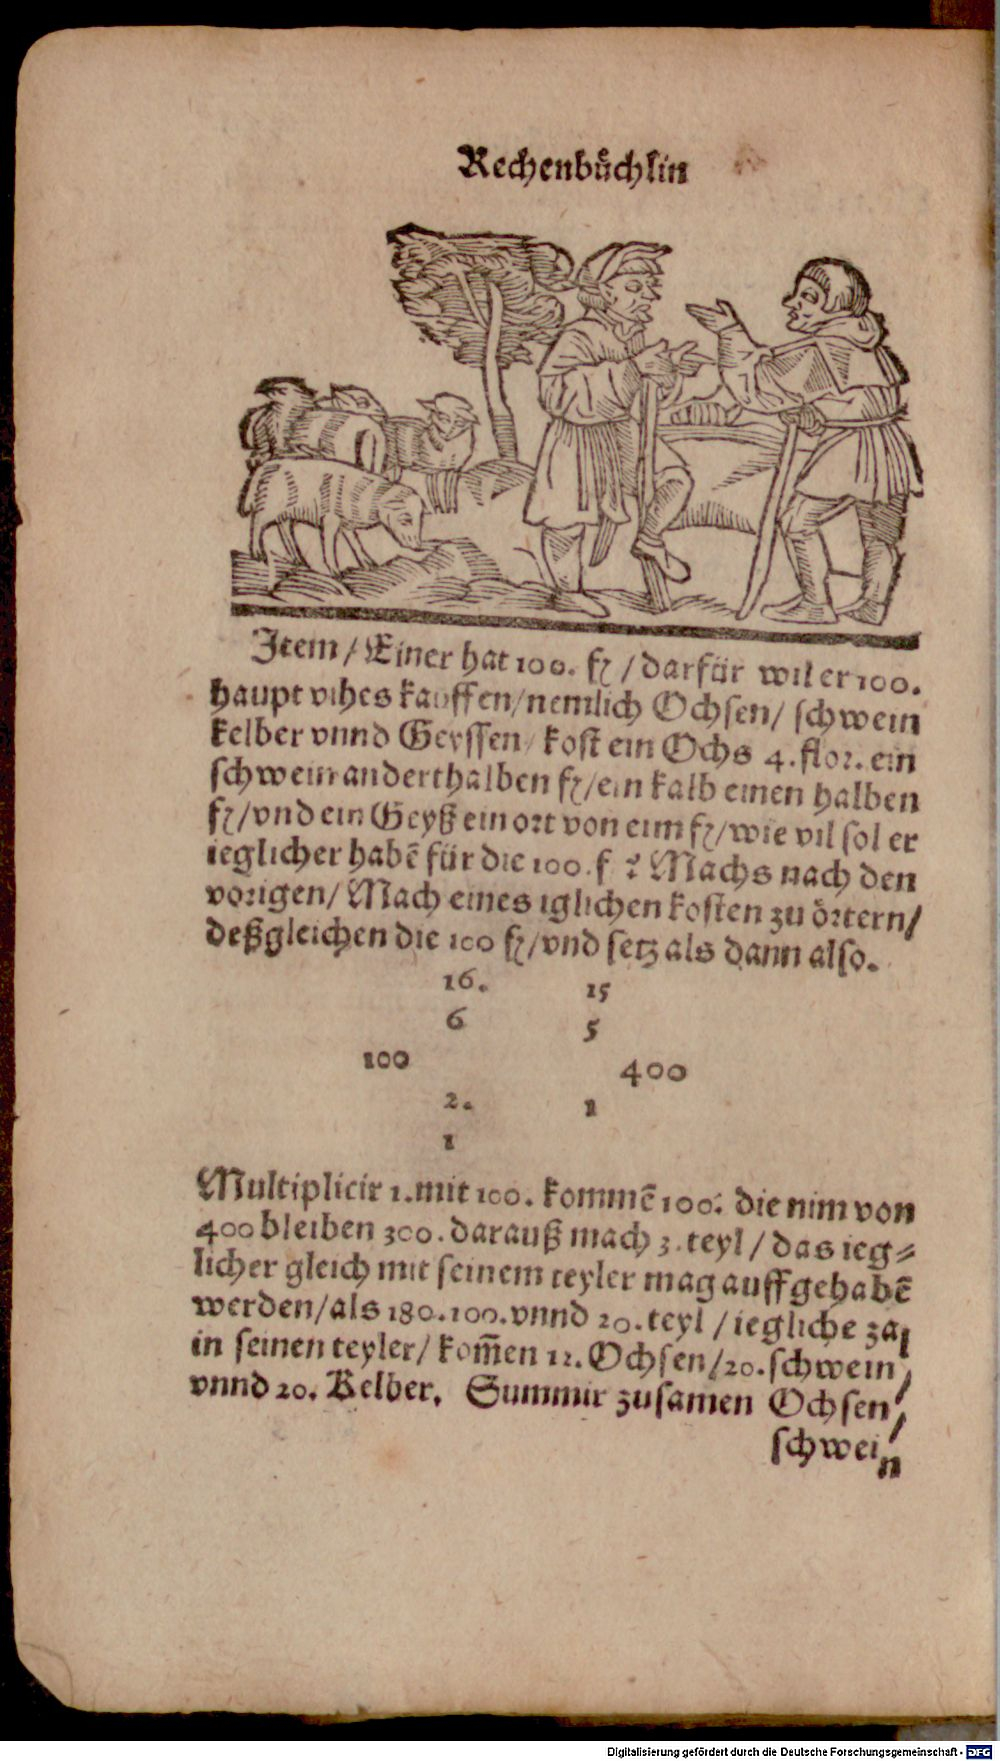 Rechenbuͤchlin
Item / Einer hat 100. fl / darfür wil er 100.
haupt vihes kauffen/ nemlich Ochsen/ schwein
kelber vnnd Geyssen/ kost ein Ochs 4. flor. ein
schwein anderthalben fl/ ein kalb einen halben
fl/ vnd ein Geyß ein ort von eim fl/ wie vil sol er
ieglicher habē für die 100. f ? Machs nach den
vorigen/ Mach eines iglichen kosten zu oͤrtern/
deßgleichen die 100 fl/ vnd setz als dann also.
16. 15
6 5
100 400
2. 1
1
Multiplicir 1. mit 100. kommē 100: die nim von
400 bleiben 300. darauß mach 3. teyl / das ieg⸗
licher gleich mit seinem teyler mag auffgehabē
werden/ als 180. 100. vnnd 20. teyl / iegliche zal
in seinen teyler/ kom̄en 12. Ochsen/ 20. schwein/
vnnd 20. Kelber. Summir zusamen Ochsen/
schwein
Digitalisierung gefördert durch die Deutsche Forschungsgemeinschaft - DFG